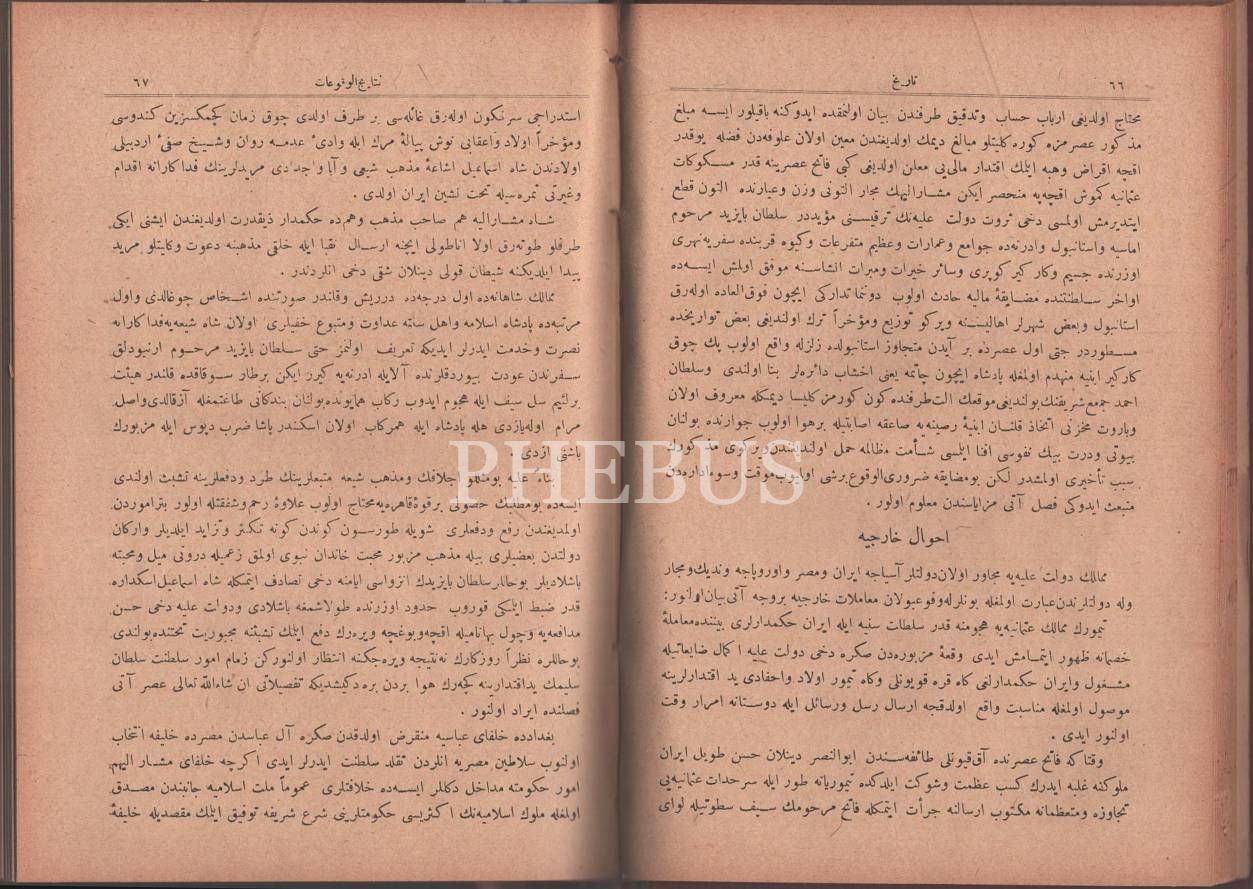 ٦٦
تاريخ
محتاج اولديغى ارباب حساب وتدقيق طرفندن بيان اولنمقده ايدوكنه باقيلور ايسه مبلغ
مذكور عصرمزه كوره كليتلو مبالغ ديمك اولديغندن معين اولان علوفه‌دن فضله يوقدر
اقچه اقراض وهبه ايتمك اقتدار مالى‌يى معلن اولديغى كبى فاتح عصرينه قدر مسكوكات
عثمانيه كموش اقچه‌يه منحصر ايكن مشاراليهك مجار التونى وزن وعيارنده التون قطع
ايتديرمش اولمسى دخى ثروت دولت عليه‌نك ترقيسنى مؤيددر سلطان بايزيد مرحوم
اماسيه واستانبول وادرنه‌ده جوامع وعمارات وعظيم متفرعات وكيوه قربنده سقريه نهرى
اوزرنده جسيم وكاركير كوپرى وسائر خيرات ومبرات انشاسنه موفق اولمش ايسه‌ده
اواخر سلطنتنده مضايقهٔ ماليه حادث اولوب دوننما تداركى ايچون فوق‌العاده اوله‌رق
استانبول وبعض شهرلر اهاليسنه ويركو توزيع ومؤخراً ترك اولنديغى بعض تواريخده
مسطوردر حتى اول عصرده بر آيدن متجاوز استانبولده زلزله واقع اولوب پك چوق
كاركير ابنيه منهدم اولمغله پادشاه ايچون چاتمه يعنى اخشاب دائره‌لر بنا اولندى وسلطان
احمد جامع شريفنك بولنديغى موقعك الت طرفنده كون كورمز كليسا ديمكله معروف اولان
وباروت مخزنى اتخاذ قلنان ابنيهٔ رصينه‌يه صاعقه اصابتيله برهوا اولوب جوارنده بولنان
بيوتى ودرت بيك نفوسى افنا ايلمسى شأمت مظالمه حمل اولنديغندن ويركوى مذكورك
سبب تأخيرى اولمشدر لكن بو مضايقه ضرورى‌الوقوع برشى اوليوب موقت وسوء اداره‌دن
منبعث ايدوكى فصل آتى مزاياسندن معلوم اولور .
احوال خارجيه
ممالك دولت عليه‌يه مجاور اولان دولتلر آسياجه ايران ومصر واوروپاجه ونديك ومجار
وله دولتلرندن عبارت اولمغله بونلرله وقوعبولان معاملات خارجيه بروجه آتى بيان اولنور:
تيمورك ممالك عثمانيه‌يه هجومنه قدر سلطات سنيه ايله ايران حكمدارلرى بيننده معاملهٔ
خصمانه ظهور ايتمامش ايدى وقعهٔ مزبوره‌دن صكره دخى دولت عليه اكمال ضايعاتيله
مشغول وايران حكمدارلغى كاه قره قويونلى وكاه تيمور اولاد واحفادى يد اقتدارلرينه
موصول اولمغله مناسبت واقع اولدقجه ارسال رسل ورسائل ايله دوستانه امرار وقت
اولنور ايدى .
وقتاكه فاتح عصرنده آق قيونلى طائفه‌سندن ابوالنصر دينلان حسن طويل ايران
ملوكنه غلبه ايدرك كسب عظمت وشوكت ايلدكده تيموريانه طور ايله سرحدات عثمانيه‌يى
تجاوزه ومتعظمانه مكتوب ارسالنه جرأت ايتمكله فاتح مرحومك سيف سطوتيله لواى
نتايج الوقوعات
٦٧
استدراجى سرنكون اوله‌رق غائله‌سى بر طرف اولدى چوق زمان كچمكسزين كندوسى
ومؤخراً اولاد واعقابى نوش پيالهٔ مرك ايله وادىٔ عدمه روان وشيخ صفىٔ اردبيلى
اولادندن شاه اسماعيل اشاعهٔ مذهب شيعى وآبا واجدادى مريدلرينك فداكارانه اقدام
وغيرتى ثمره‌سيله تخت نشين ايران اولدى .
شاه مشاراليه هم صاحب مذهب وهم‌ده حكمدار ذيقدرت اولديغندن ايشنى ايكى
طرفلو طوته‌رق اولا اناطولى ايچنه ارسال نقبا ايله خلقى مذهبنه دعوت وكليتلو مريد
پيدا ايلديكنه شيطان قولى دينلان شقى دخى انلردندر .
ممالك شاهانه‌ده اول درجه‌ده درويش وقلندر صورتنده اشخاص چوغالدى واول
مرتبه‌ده پادشاه اسلامه واهل سنته عداوت ومتبوع خفيلرى اولان شاه شيعه‌يه فداكارانه
نصرت وخدمت ايدرلر ايديكه تعريف اولنمز حتى سلطان بايزيد مرحوم ارنبودلق
سفرندن عودت بيوردقلرنده آلايله ادرنه‌يه كيرر ايكن برطار سوقاقده قلندر هيئت
برلئيم سل سيف ايله هجوم ايدوب ركاب همايونده بولنان بندكانى طاغتمغله آزقالدى واصل
مرام اوله‌يازدى هله پادشاه ايله همركاب اولان اسكندر پاشا ضرب دبوس ايله مزبورك
باشنى ازدى .
بناءً عليه بومثللو اجلافك ومذهب شيعه متبعلرينك طرد ودفعلرينه تشبث اولندى
ايسه‌ده بومطلبك حصولى برقوهٔ قاهره‌يه محتاج اولوب علاوهٔ رحم وشفقتله اولور بتراموردن
اولمديغندن رفع ودفعلرى شويله طورسون كوندن كونه تكثر وتزايد ايلديلر واركان
دولتدن بعضيلرى بيله مذهب مزبور محبت خاندان نبوى اولمق زعميله درونى ميل ومحبته
باشلاديلر بوحاللر سلطان بايزيدك انزواسى ايامنه دخى تصادف ايتمكله شاه اسماعيل اسكداره
قدر ضبط ايتمكى قوروب حدود اوزرنده طولاشمغه باشلادى ودولت عليه دخى حسن
مدافعه‌يه وچول بهاناميله اقچه وبوغچه ويره‌رك دفع ايتمك تشبثنه مجبوريت تحتنده بولندى
بوحاللره نظراً روزكارك نه‌نتيجه ويره‌جكنه انتظار اولنوركن زمام امور سلطنت سلطان
سليمك يد اقتدارينه كچه‌رك هوا بردن بره دكيشديكه تفصيلاتى ان شاءالله تعالى عصر آتى
فصلنده ايراد اولنور .
بغدادده خلفاى عباسيه منقرض اولدقدن صكره آل عباسدن مصرده خليفه انتخاب
اولنوب سلاطين مصريه انلردن تقلد سلطنت ايدرلر ايدى اكرچه خلفاى مشار اليهم
امور حكومته مداخل دكللر ايسه‌ده خلافتلرى عموماً ملت اسلاميه جانبندن مصدق
اولمغله ملوك اسلاميه‌نك اكثريسى حكومتلرينى شرع شريفه توفيق ايتمك مقصديله خليفهٔ
PHEBUS